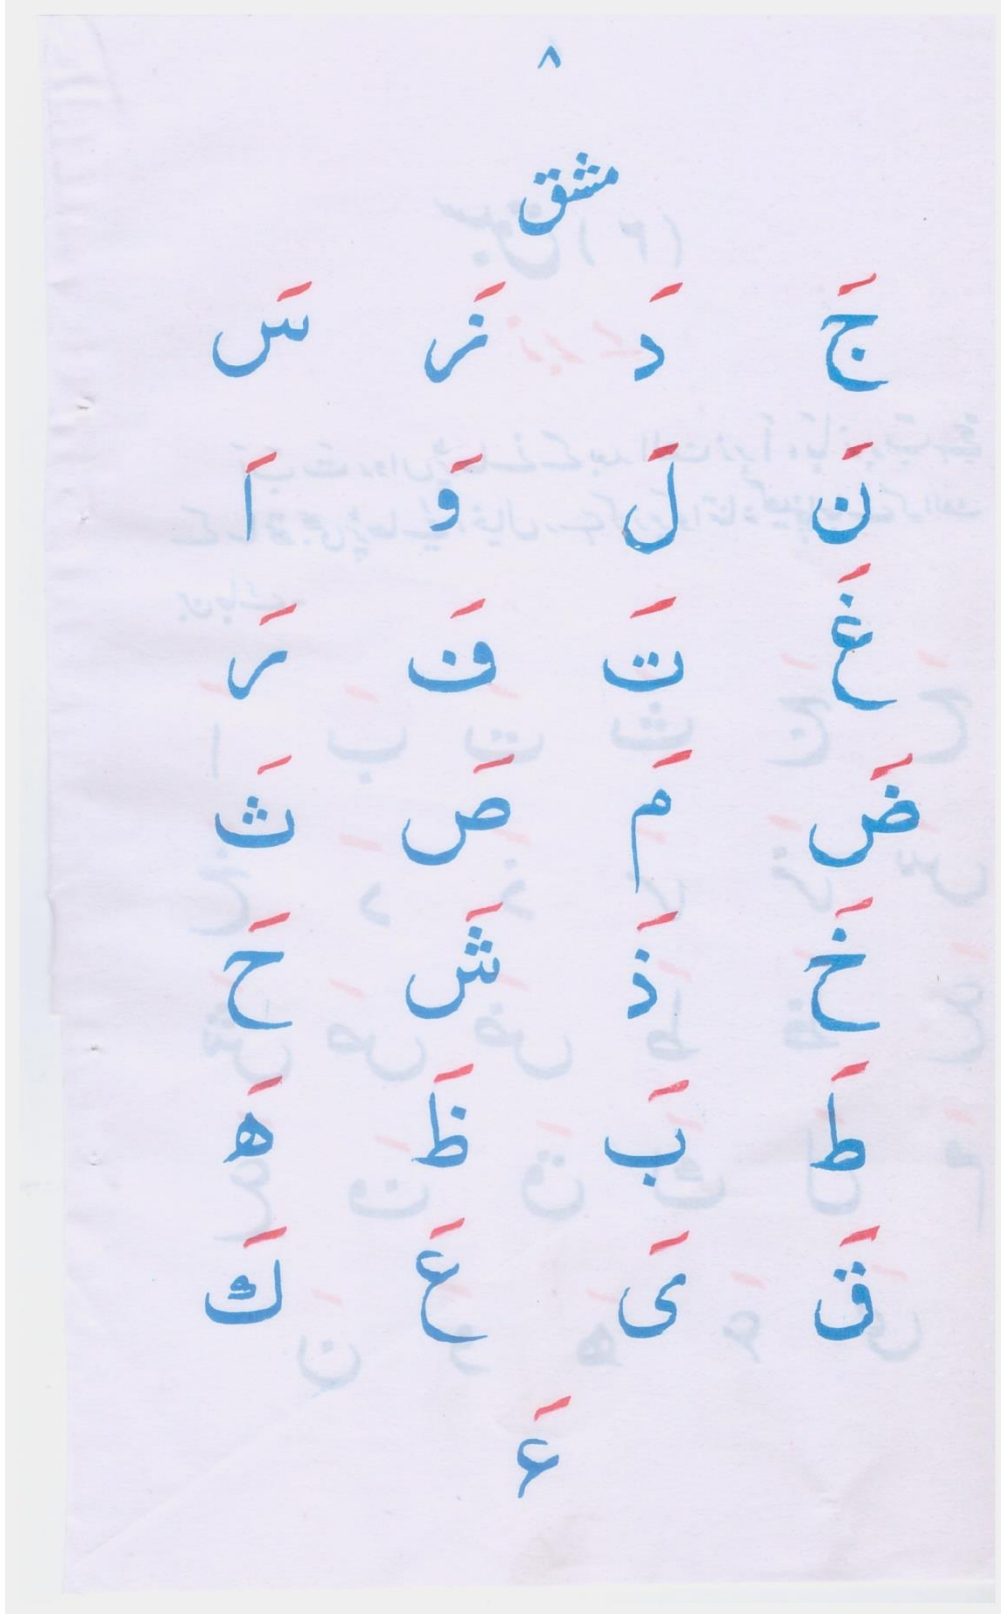 ۸
مشق
جَ دَ زَ سَ
نَ لَ وَ اَ
غَ تَ فَ رَ
ضَ مَ صَ ثَ
خَ ذَ شَ حَ
طَ بَ ظَ هَ
قَ یَ عَ كَ
ءَ